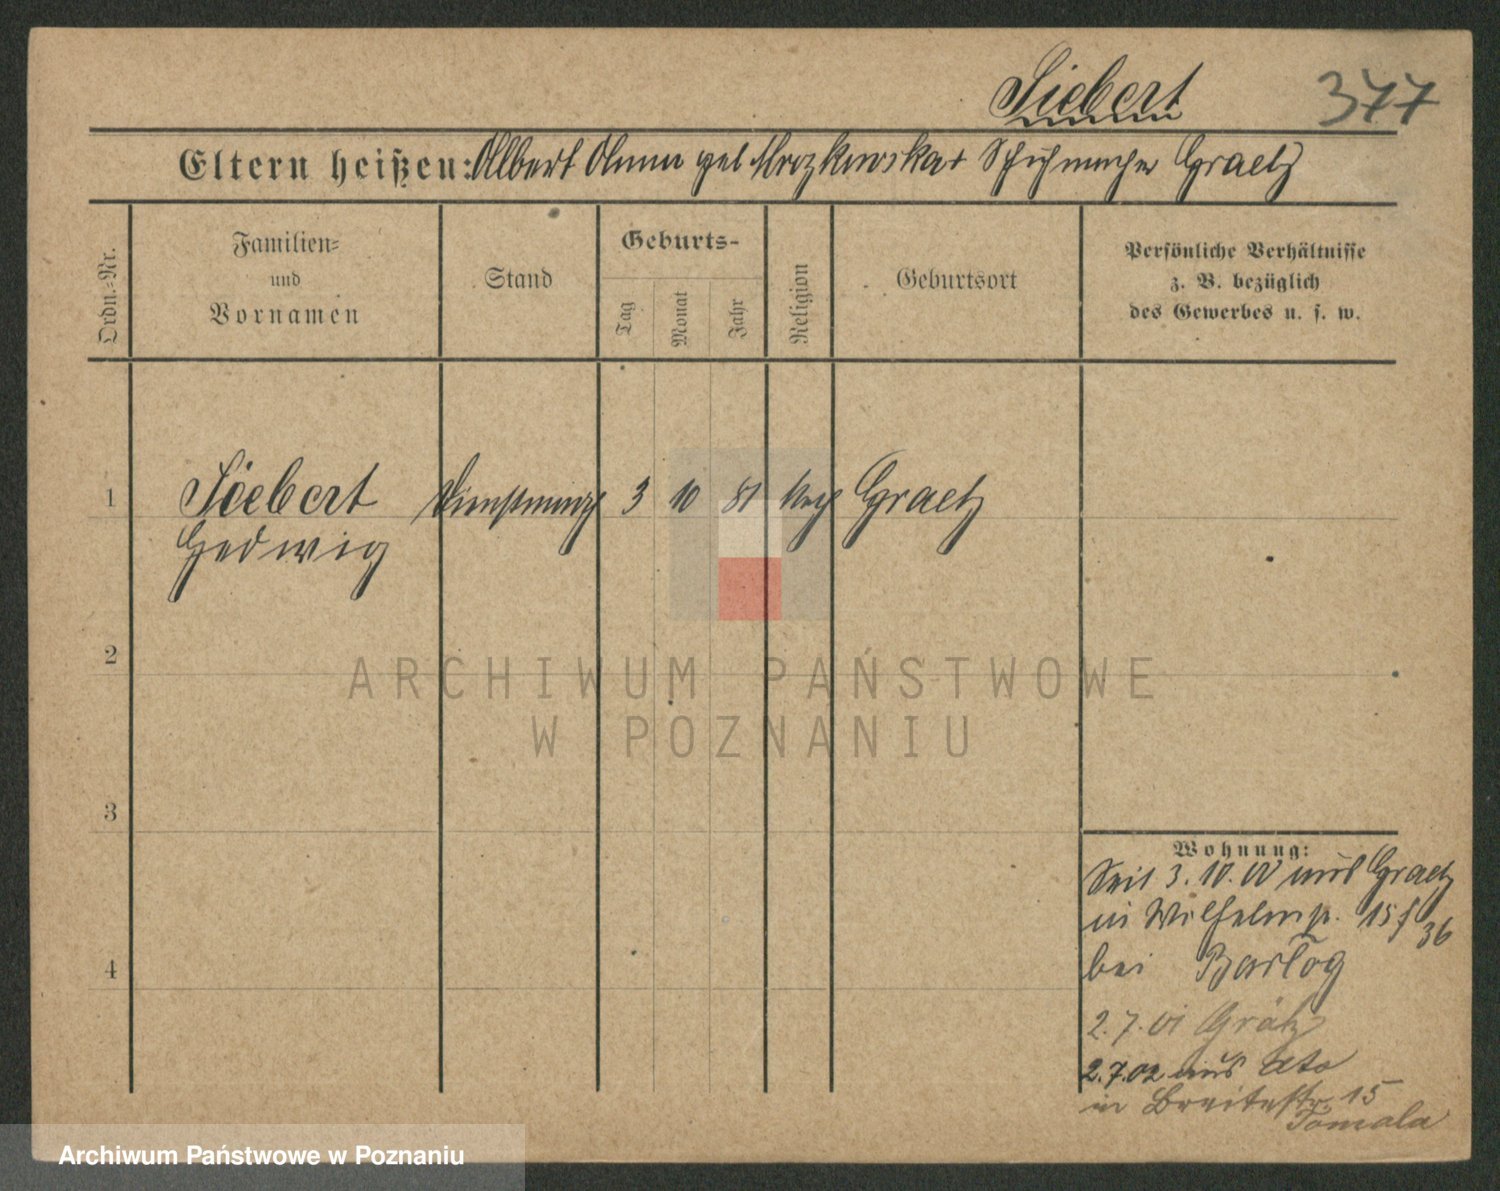 Siebert 377
Eltern heißen: Albert Anna geb Mrozkowska Schuhmacher Graetz
Ordn.-Nr.
Familien-
und
Vornamen
Stand
Geburts-
Tag
Monat
Jahr
Religion
Geburtsort
Persönliche Verhältnisse
z. B. bezüglich
des Gewerbes u. s. w.
1 Siebert 3 10 81 Graetz
Hedwig
2
3
4
Wohnung:
Seit 3. 10. 00 aus Graetz
in Wilhelmpl. 15
36
bei
2.7.01 Grätz
2.7.02 aus
in Breitestr. 15
Tomala
ARCHIWUM PAŃSTWOWE
W POZNANIU
Archiwum Państwowe w Poznaniu